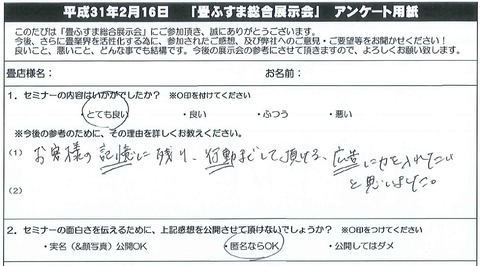 平成31年2月16日　「畳ふすま総合展示会」　アンケート用紙
このたびは「畳ふすま総合展示会」にご参加頂き、誠にありがとうございます。
今後、さらに畳業界を活性化する為に、参加されたご感想、及び弊社へのご意見・ご要望等をお聞かせください！
良いこと、悪いこと、どんな事でも結構です。今後の展示会の参考にさせて頂きますので、よろしくお願い致します。
畳店様名：　お名前：
1．セミナーの内容はいかがでしたか？　※○印を付けてください
・とても良い　・良い　・ふつう　・悪い
※今後の参考のために、その理由を詳しくお教えください。
(1) お客様の記憶に残り、行動までして頂ける、広告に力を入れたい
と思いました。
(2)
2．セミナーの面白さを伝えるために、上記感想を公開させて頂けないでしょうか？　※○印をつけてください
・実名（&顔写真）公開OK　・匿名ならOK　・公開してはダメ